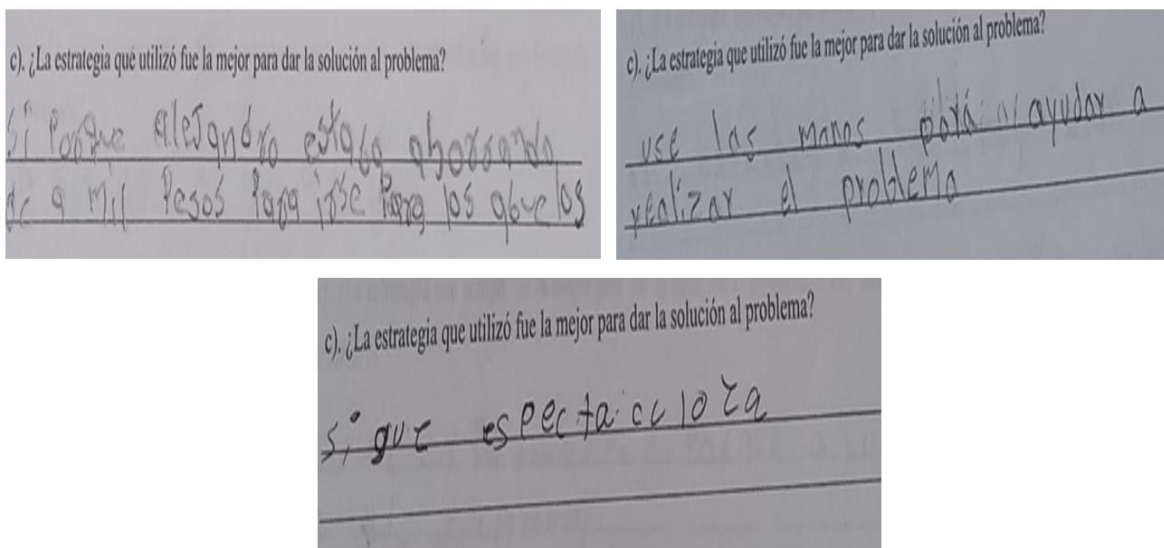 c). ¿La estrategia que utilizó fue la mejor para dar la solución al problema?
Si Porque alejandro estaba ahorrando
de a mil Pesos Para irse Para los abuelos
c). ¿La estrategia que utilizó fue la mejor para dar la solución al problema?
use las manos ayudar a
realizar el problema
c). ¿La estrategia que utilizó fue la mejor para dar la solución al problema?
si que